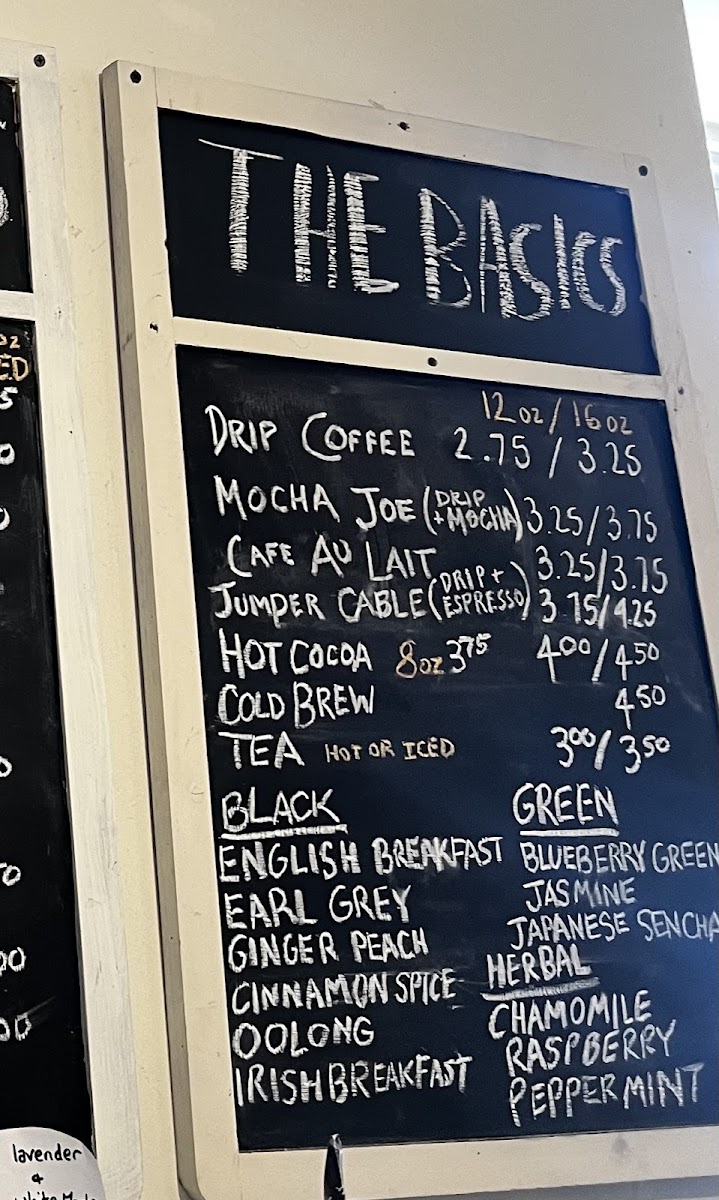 THE BASICS
12 oz / 16 oz
DRIP COFFEE 2.75 / 3.25
MOCHA JOE (DRIP + MOCHA) 3.25/3.75
CAFE AU LAIT 3.25/3.75
JUMPER CABLE (DRIP + ESPRESSO) 3.75/4.25
HOT COCOA 8oz 3.75 4.00/4.50
COLD BREW 4.50
TEA HOT OR ICED 3.00/3.50
BLACK
ENGLISH BREAKFAST
EARL GREY
GINGER PEACH
CINNAMON SPICE
OOLONG
IRISH BREAKFAST
GREEN
BLUEBERRY GREEN
JASMINE
JAPANESE SENCHA
HERBAL
CHAMOMILE
RASPBERRY
PEPPERMINT
lavender
&